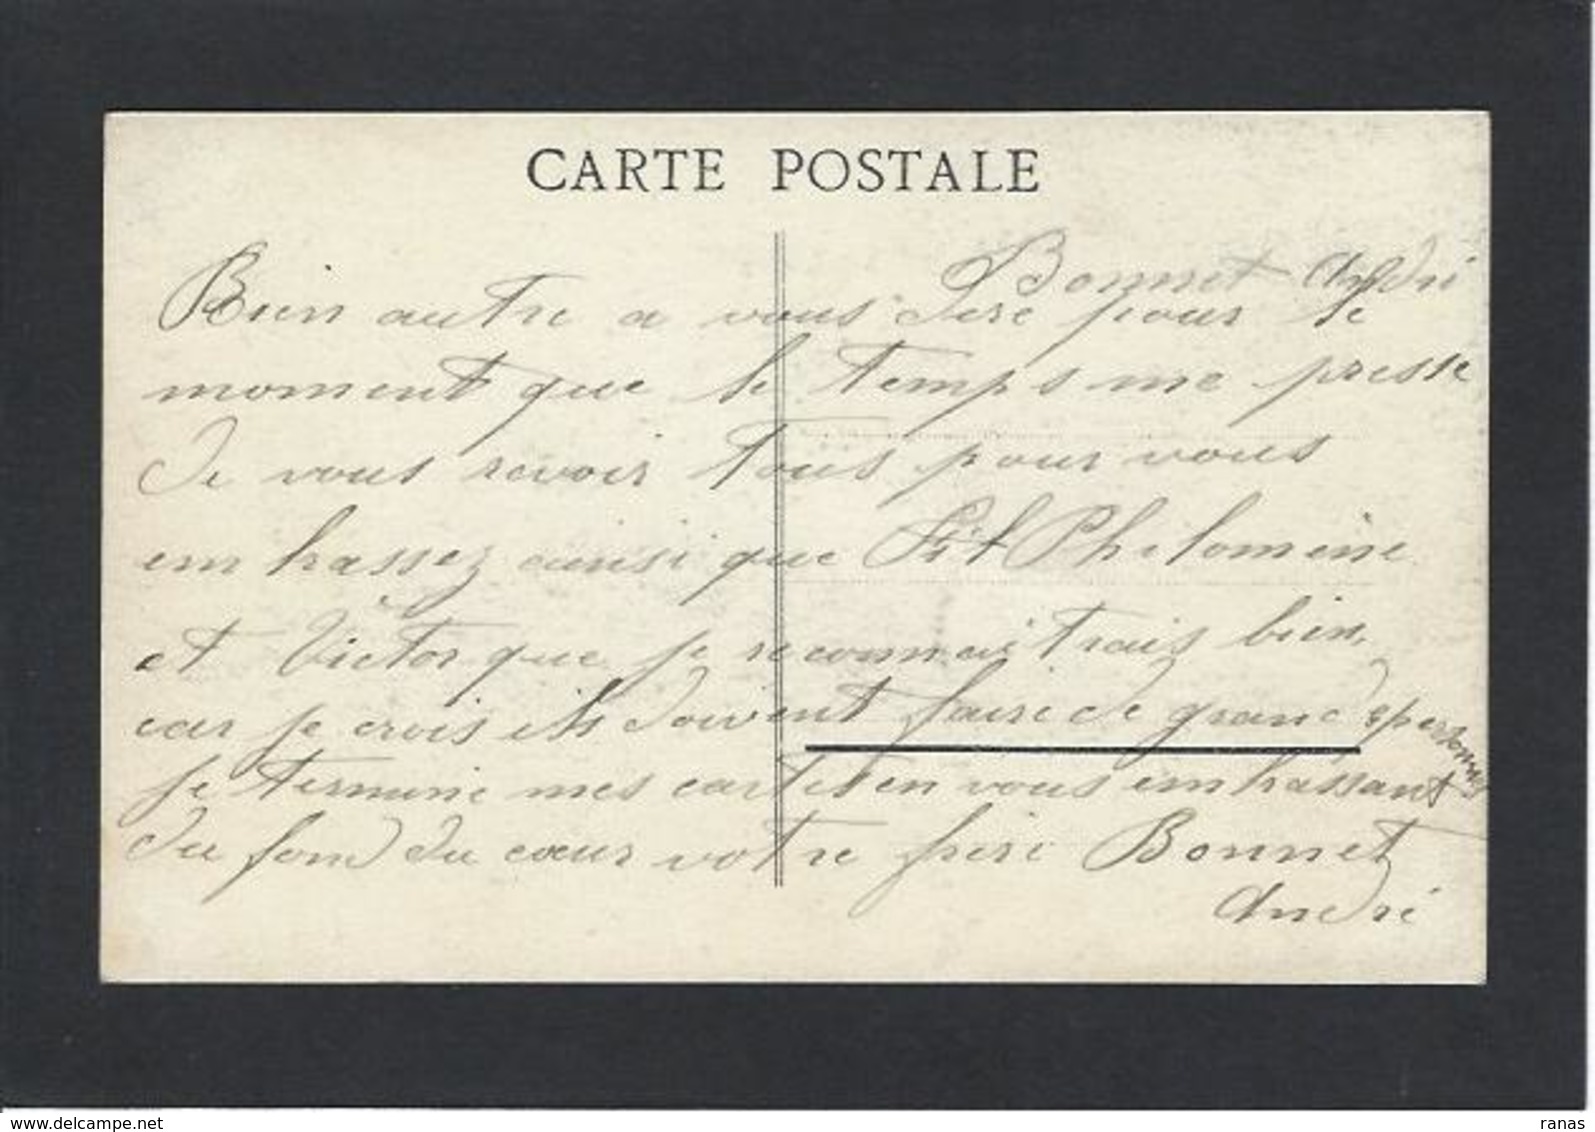 CARTE POSTALE
Bonnet André
Bien autre a vous dire pour le
moment que le temps me presse
Je vous revoir tous pour vous
em brassez ainsi que Philomène
et Victor que je reconnaitrais bien
car je crois ils doivent faire de grands personnes
je termine mes cartes en vous embrassant
du fond du cœur votre frère Bonnet
André
www.delcampe.net
ranas